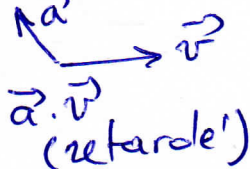 a⃗
v⃗
a⃗ . v⃗
(retardé)